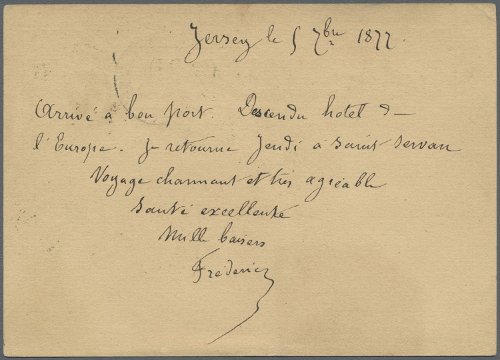 Jersey le 5 7bre 1877.
Arrivé à bon port. Descendu hotel d
l'Europe. Je retourne Jeudi à Saint Servan
Voyage charmant et très agréable
Santé excellente
Mille baisers
Frédéric